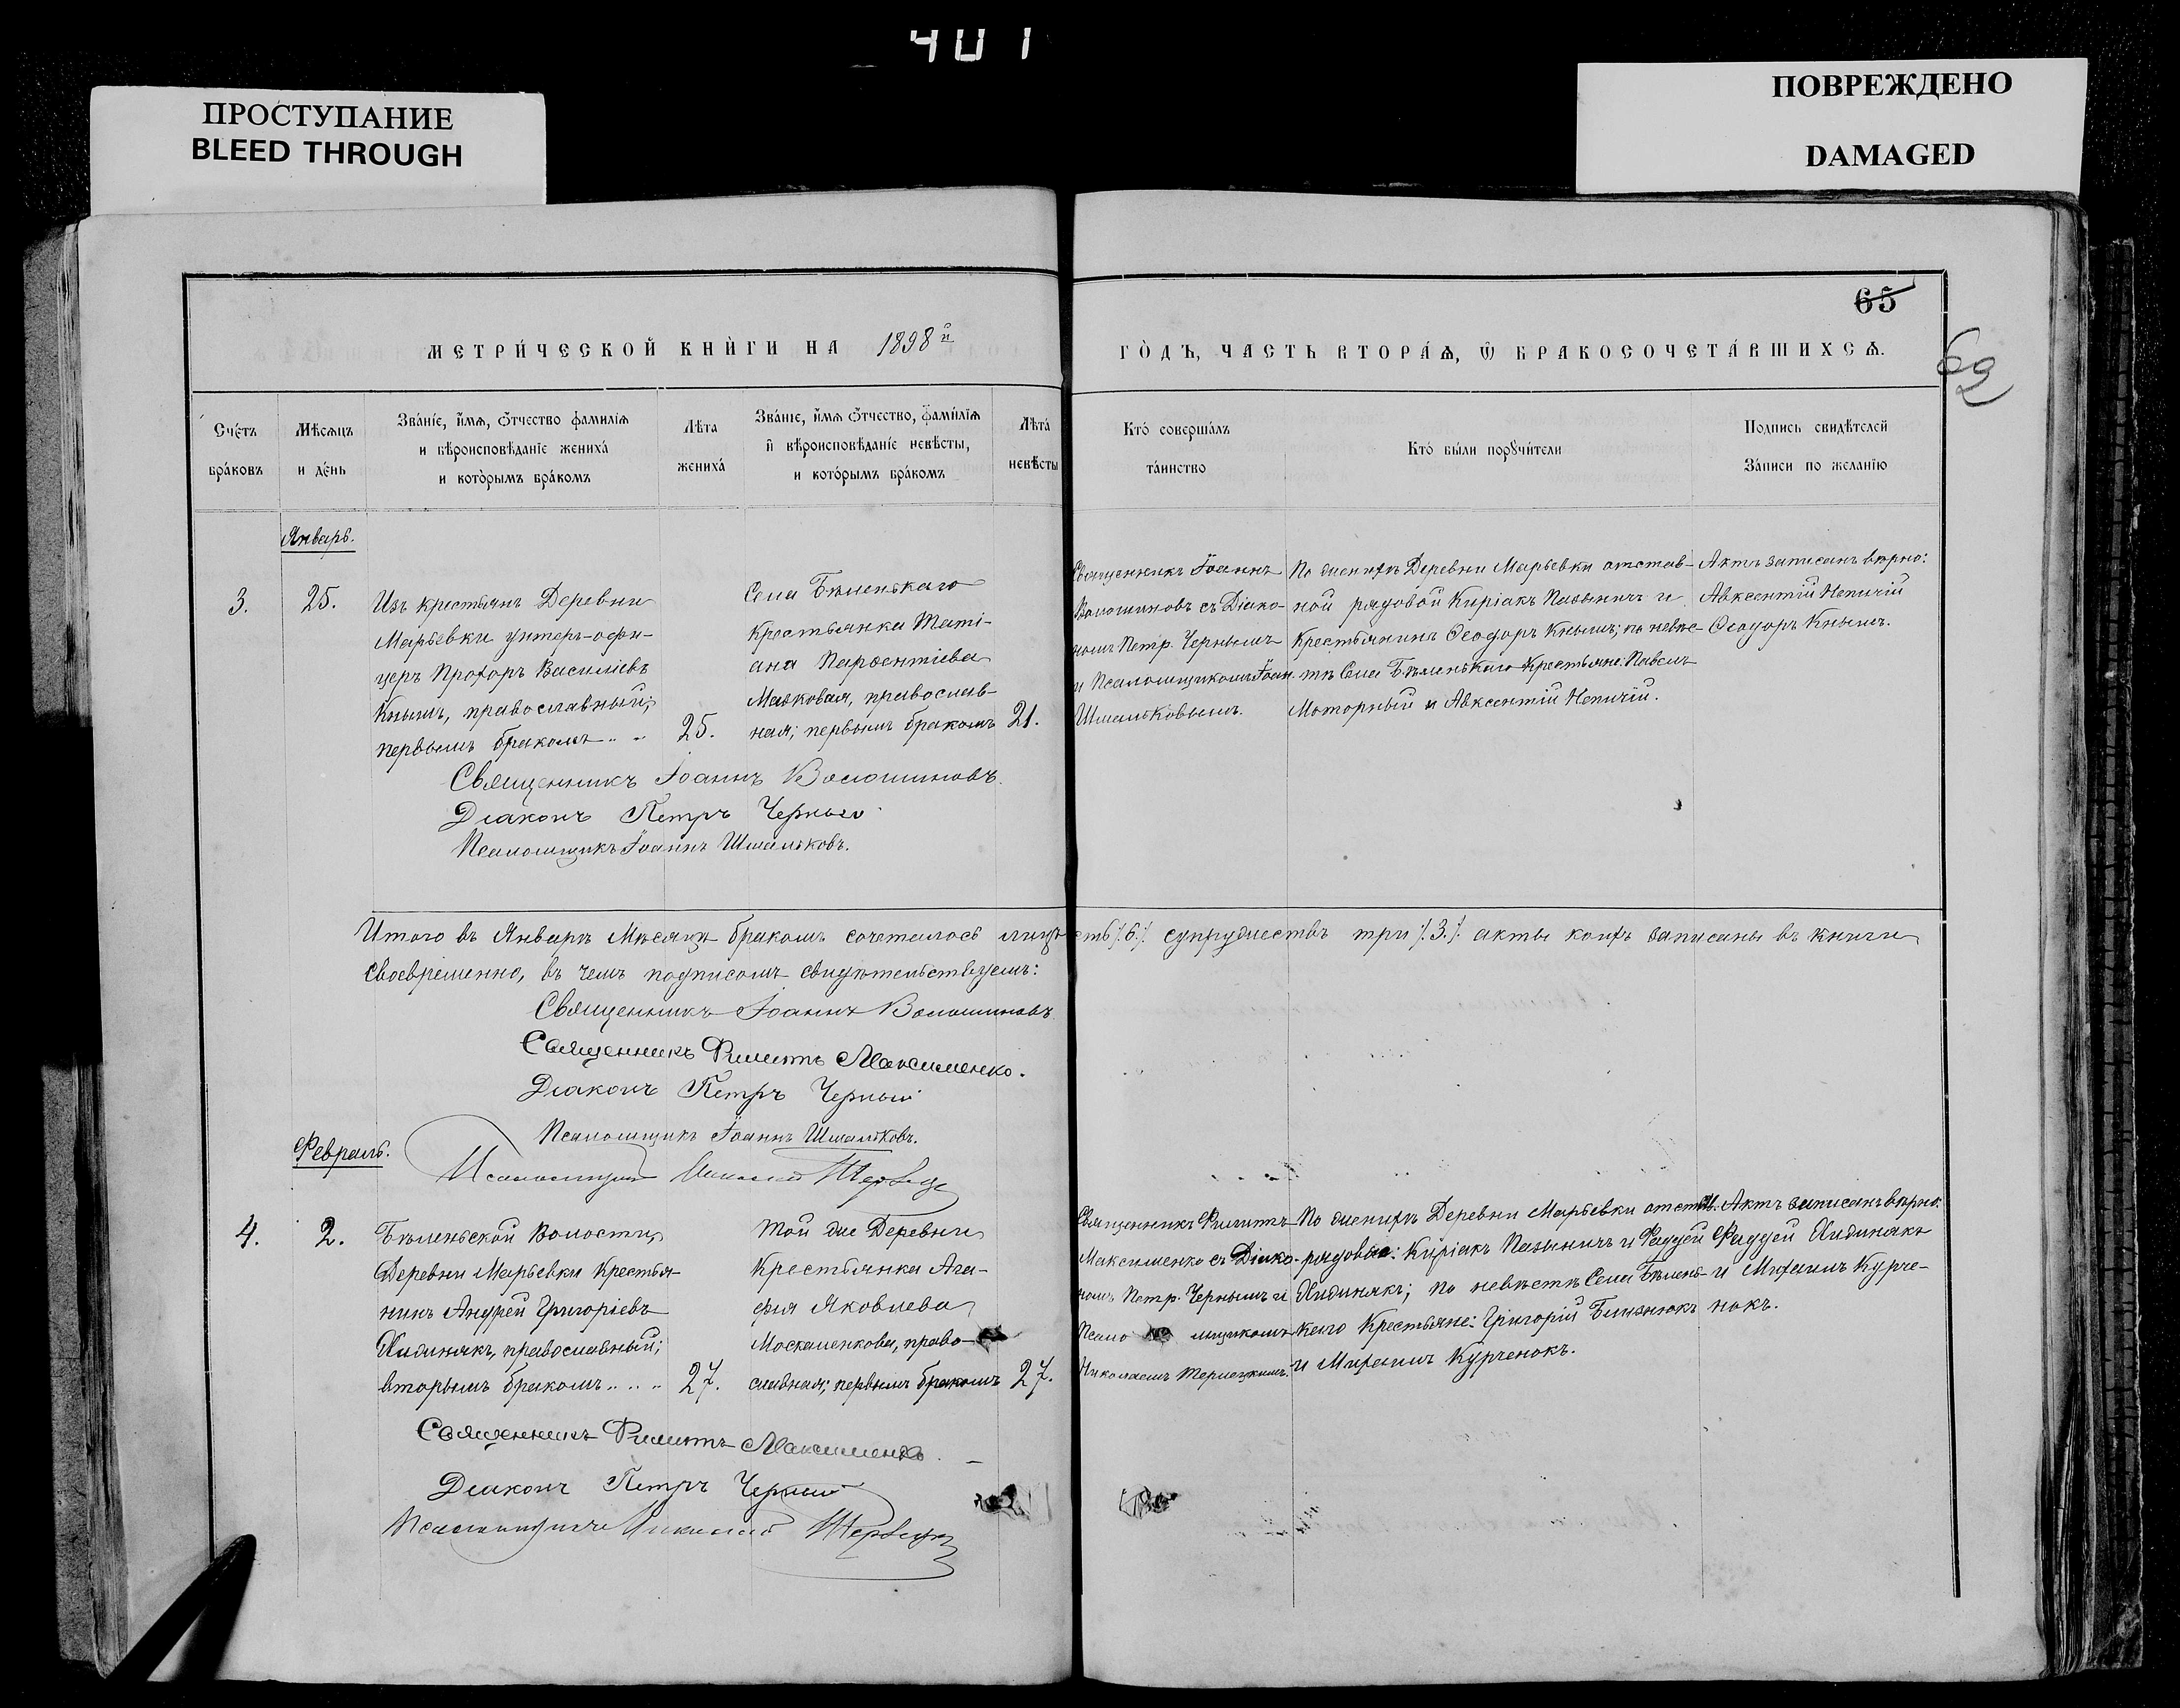 401
ПРОСТУПАНИЕ
BLEED THROUGH
ПОВРЕЖДЕНО
DAMAGED
65
69
МЕТРИ́ЧЕСКОЙ КНИ́ГИ НА 1898й
ГО́ДЪ, ЧАСТЬ ВТОРА́Ѧ, Ѿ БРАКОСОЧЕТА́ВШИХСѦ.
Сче́тъ
бра́ковъ
Мѣсѧцъ
и де́нь
Зва́нїе, и҆́мѧ, ѻ҆́тчество фамилїѧ
и вѣроисповѣданїе жениха́
и кото́рымъ бра́комъ
Лѣта
жениха́
Зва́нїе, и҆́мѧ ѻ҆́тчество, фами́лїѧ
и҆ вѣроисповѣданїе невѣсты,
и кото́рымъ бра́комъ
Лѣта́
невѣсты
Кто́ соверша́лъ
та́инство
Кто́ бы́ли порꙋчи́тели
Подпись свидѣтелей
За́писи по желанїю
Январь.
3.
25.
Изъ крестьянъ Деревни
Марьевки унтеръ-офи-
церъ Прохоръ Василіевъ
Кнышъ, православный;
первымъ бракомъ
25.
Села Бѣленькаго
Крестьянка Таті-
ана Парѳентіева
Малковая, православ-
ная; первымъ бракомъ
21.
Священникъ Іоаннъ
Волошиновъ съ Діако-
номъ Петр. Чернымъ
и Псаломщикомъ Іоан.
Шмальковымъ.
По женихѣ Деревни Марьевки отстав-
ной рядовой Киріакъ Пазыничъ и
Крестьянинъ Ѳеодоръ Кнышъ; по невѣс-
тѣ Села Бѣленькаго Крестьяне: Павелъ
Моторный и Авксентій Непичій.
Актъ записанъ вѣрно:
Авксентій Непичій
Ѳеодоръ Кнышъ.
Священникъ Іоаннъ Волошиновъ.
Діаконъ Петръ Черный
Псаломщикъ Іоаннъ Шмальковъ.
Итого въ Январѣ Мѣсяцѣ бракомъ сочеталось лицъ шесть /.6./ супружествъ три /.3./ акты коихъ записаны въ книги
своевременно, въ чемъ подписомъ свидѣтельствуемъ:
Священникъ Іоаннъ Волошиновъ
Священникъ Филиппъ Максименко.
Діаконъ Петръ Черный
Псаломщикъ Іоаннъ Шмальковъ.
Псаломщикъ Николай
Февраль.
4.
2.
Бѣленьской Волости,
Деревни Марьевки Крестья-
нинъ Андрей Григоріевъ
Жидинякъ, православный;
вторымъ бракомъ
27.
Той же Деревни
Крестьянка Ага-
фія Яковлева
Москаленкова, право-
славная; первымъ бракомъ
27.
Священникъ Филиппъ
Максименко съ Діако-
номъ Петр. Чернымъ и
Псаломщикомъ
Николаемъ
По женихѣ Деревни Марьевки отстав.
рядовые: Киріакъ Пазыничъ и Фаддей
Жидинякъ; по невѣстѣ Села Бѣлень-
каго Крестьяне: Григорій Близнюкъ
и Михаилъ Курченокъ.
Актъ записанъ вѣрно:
Фаддей Жидинякъ
и Михаилъ Курче-
нокъ.
Священникъ Филиппъ Максименко.
Діаконъ Петръ Черный
Псаломщикъ Николай